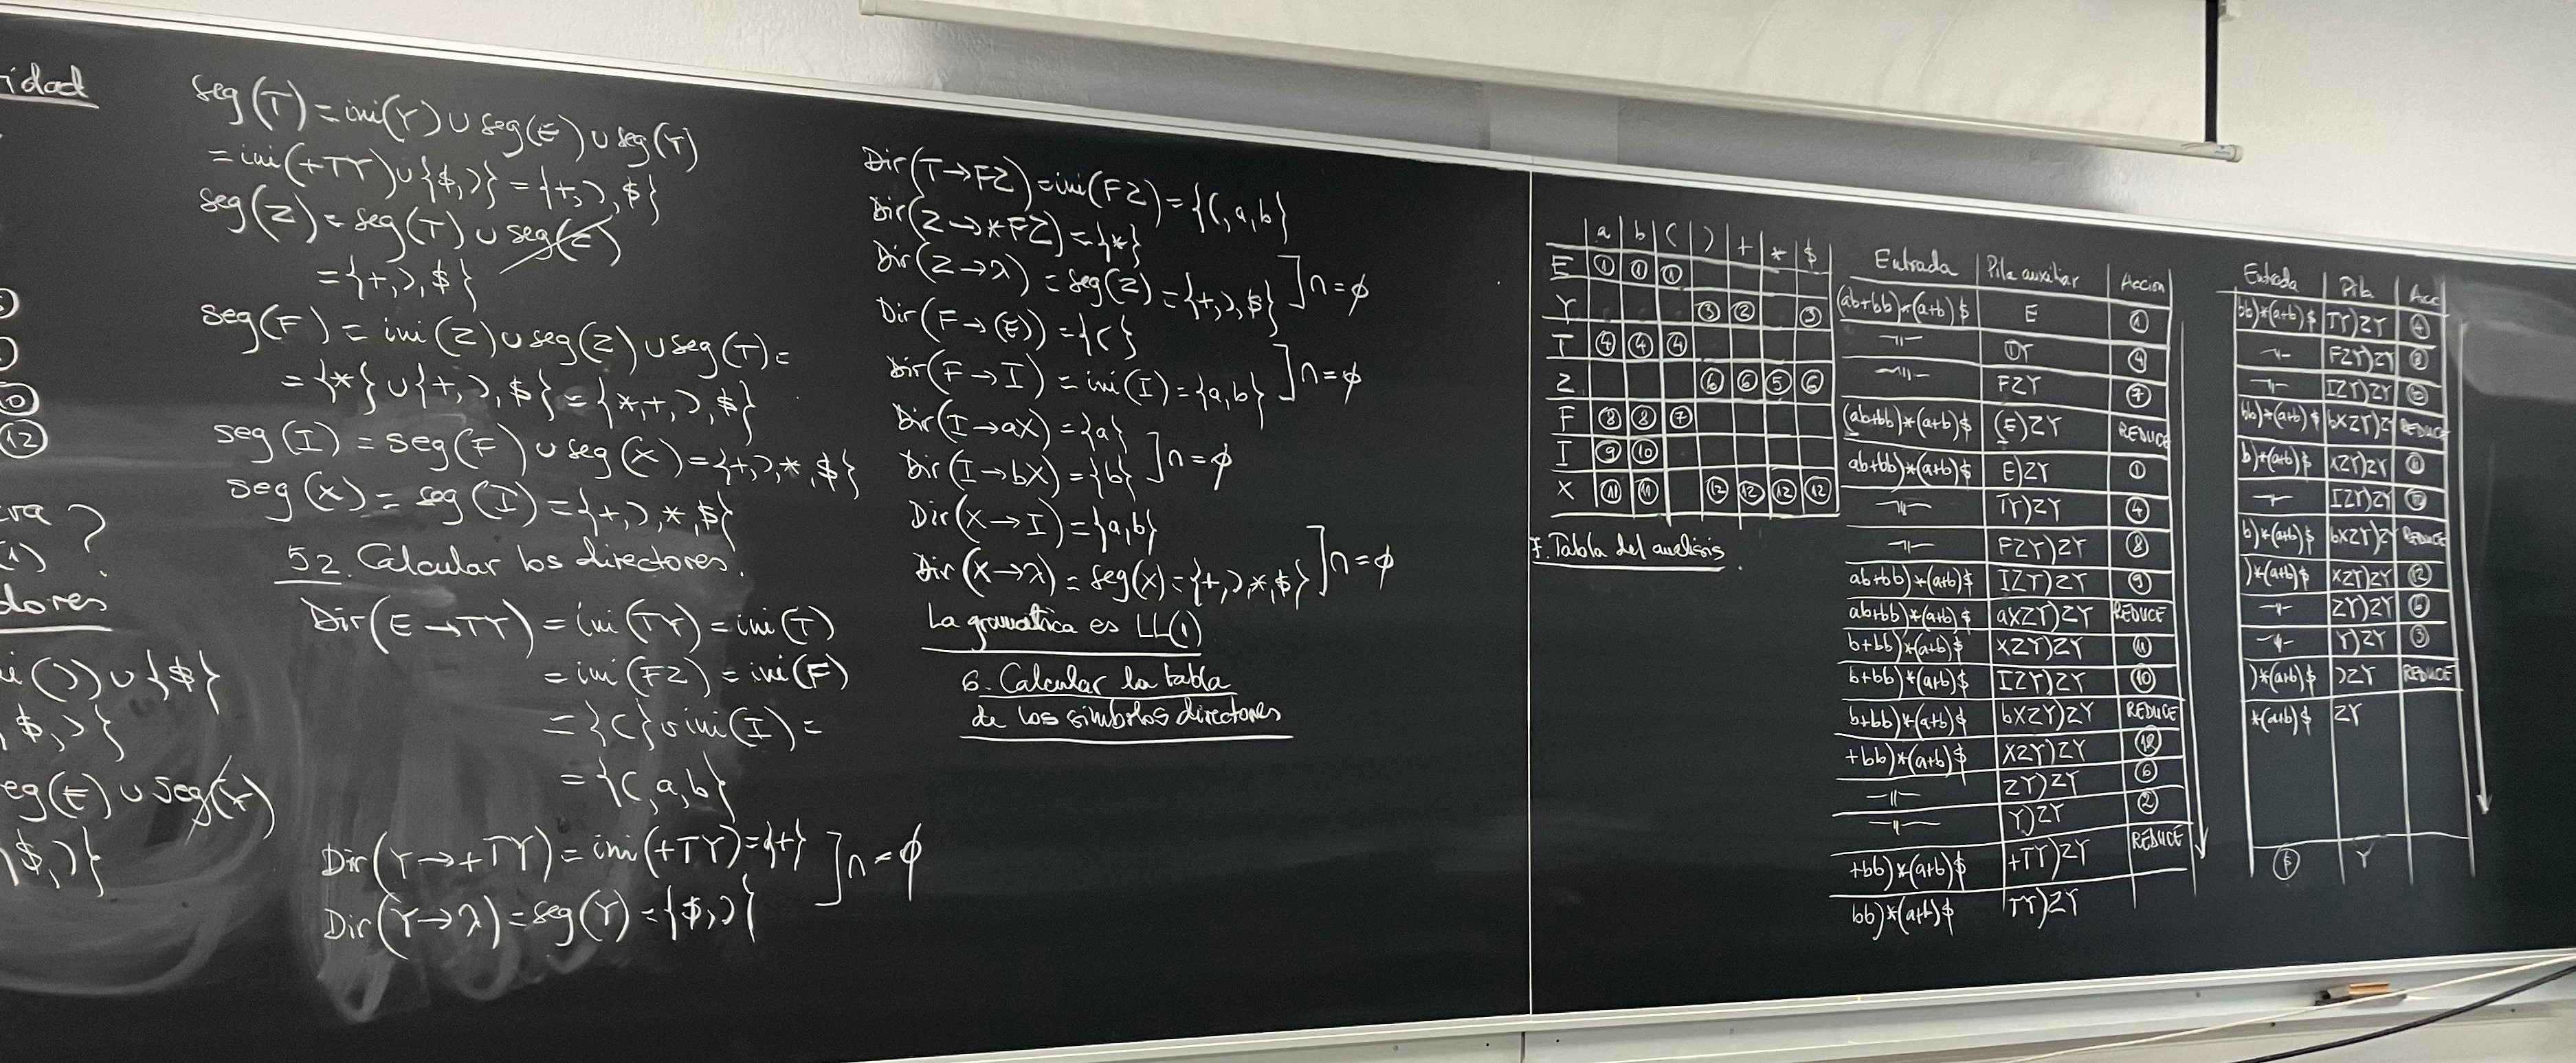 idad
5
0
12
ra ?
1)
dores
i()) ∪ {$}
$,)}
eg(E) ∪ seg(Y)
$,)}
seg(T) = ini(Y) ∪ seg(E) ∪ seg(T)
= ini(+TY) ∪ {$,)} = {+,),$}
seg(Z) = seg(T) ∪ seg(Z)
= {+,),$}
seg(F) = ini(Z) ∪ seg(Z) ∪ seg(T) =
= {*} ∪ {+,),$} = {*,+,),$}
seg(I) = seg(F) ∪ seg(X) = {+,),*,$}
seg(X) = seg(I) = {+,),*,$}
52. Calcular los directores.
Dir(E→TY) = ini(TY) = ini(T)
= ini(FZ) = ini(F)
= {(} ∪ ini(I) =
= {(,a,b}
Dir(Y→+TY) = ini(+TY) = {+} ] ∩ = ϕ
Dir(Y→λ) = seg(Y) = {$,)}
Dir(T→FZ) = ini(FZ) = {(,a,b}
Dir(Z→*FZ) = {*}
Dir(Z→λ) = seg(Z) = {+,),$} ] ∩ = ϕ
Dir(F→(E)) = {(}
Dir(F→I) = ini(I) = {a,b} ] ∩ = ϕ
Dir(I→aX) = {a}
Dir(I→bX) = {b} ] ∩ = ϕ
Dir(X→I) = {a,b}
Dir(X→λ) = seg(X) = {+,),*,$} ] ∩ = ϕ
La gramática es LL(1)
6. Calcular la tabla
de los símbolos directores
a b ( ) + * $
E 1 1 1
Y 3 2 3
T 4 4 4
Z 6 6 5 6
F 8 8 7
I 9 10
X 11 11 12 12 12 12
7. Tabla del analisis.
Entrada Pila auxiliar Accion
(ab+bb)*(a+b)$ E 1
—"— TY 4
—"— FZY 7
(ab+bb)*(a+b)$ (E)ZY REDUCE
ab+bb)*(a+b)$ E)ZY 1
—"— TY)ZY 4
—"— FZY)ZY 8
ab+bb)*(a+b)$ IZY)ZY 9
ab+bb)*(a+b)$ aXZY)ZY REDUCE
b+bb)*(a+b)$ XZY)ZY 11
b+bb)*(a+b)$ IZY)ZY 10
b+bb)*(a+b)$ bXZY)ZY REDUCE
+bb)*(a+b)$ XZY)ZY 12
—"— ZY)ZY 6
—"— Y)ZY 2
+bb)*(a+b)$ +TY)ZY REDUCE
bb)*(a+b)$ TY)ZY
Entrada Pila Acc
bb)*(a+b)$ TY)ZY 4
—"— FZY)ZY 8
—"— IZY)ZY 10
bb)*(a+b)$ bXZY)ZY REDUCE
b)*(a+b)$ XZY)ZY 11
—"— IZY)ZY 10
b)*(a+b)$ bXZY)ZY REDUCE
)*(a+b)$ XZY)ZY 12
—"— ZY)ZY 6
—"— Y)ZY 3
)*(a+b)$ )ZY REDUCE
*(a+b)$ ZY
$ Y